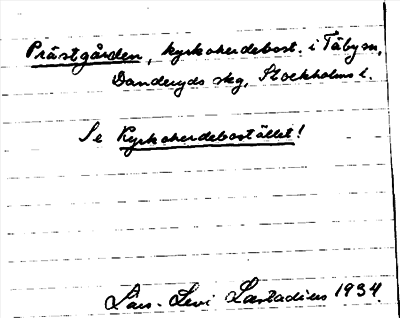 Prästgården, kyrkoherdebost. i Täby sn,
Danderyds skg, Stockholms l.
Se Kyrkoherdebostället!
Lars-Levi Læstadius 1934.